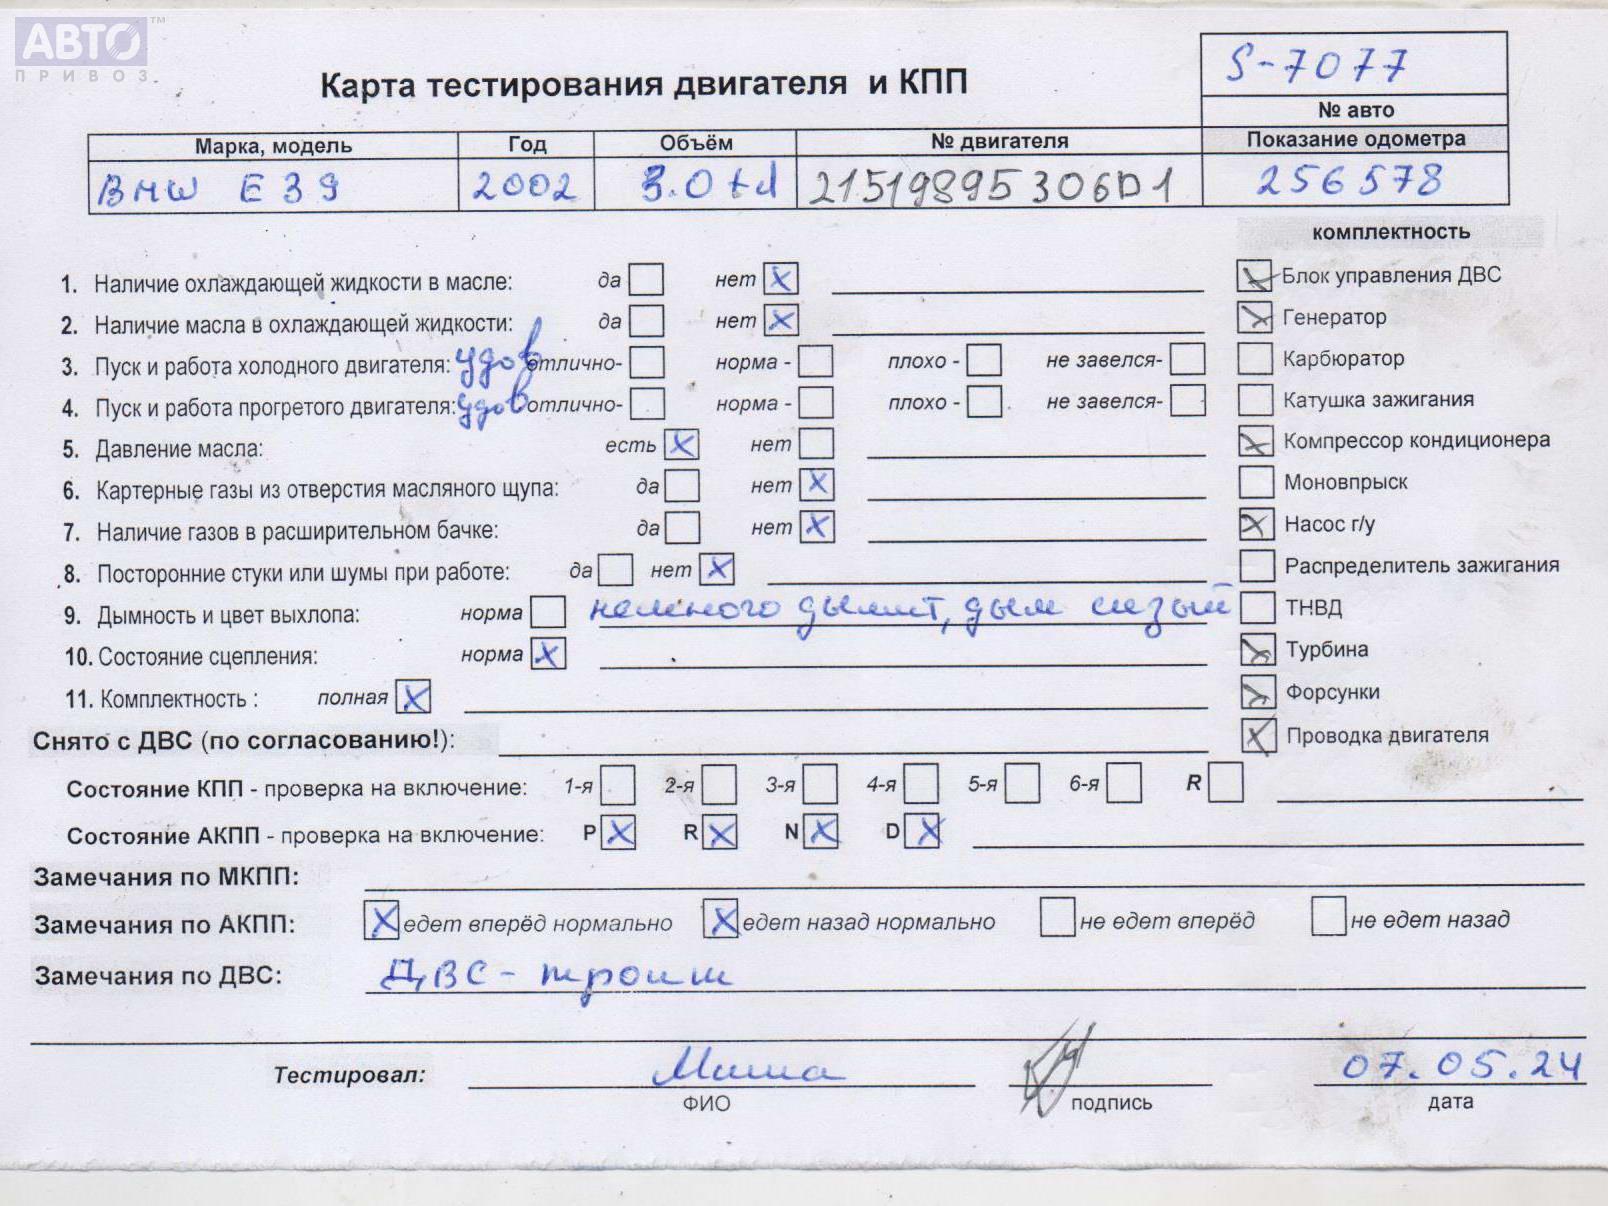 АВТО™
ПРИВОЗ
Карта тестирования двигателя и КПП
S-7077
№ авто
Марка, модель Год Объём № двигателя Показание одометра
BMW E39 2002 3.0 td 21519895 306D1 256578
комплектность
1. Наличие охлаждающей жидкости в масле: да нет X
2. Наличие масла в охлаждающей жидкости: да нет X
3. Пуск и работа холодного двигателя: удов отлично- норма - плохо - не завелся-
4. Пуск и работа прогретого двигателя: удов отлично- норма - плохо - не завелся-
5. Давление масла: есть X нет
6. Картерные газы из отверстия масляного щупа: да нет X
7. Наличие газов в расширительном бачке: да нет X
8. Посторонние стуки или шумы при работе: да нет X
9. Дымность и цвет выхлопа: норма немного дымит, дым сизый
10. Состояние сцепления: норма X
11. Комплектность : полная X
X Блок управления ДВС
X Генератор
Карбюратор
Катушка зажигания
X Компрессор кондиционера
Моновпрыск
X Насос г/у
Распределитель зажигания
ТНВД
X Турбина
X Форсунки
X Проводка двигателя
Снято с ДВС (по согласованию!):
Состояние КПП - проверка на включение: 1-я 2-я 3-я 4-я 5-я 6-я R
Состояние АКПП - проверка на включение: P X R X N X D X
Замечания по МКПП:
Замечания по АКПП: X едет вперёд нормально X едет назад нормально не едет вперёд не едет назад
Замечания по ДВС: ДВС - троит
Тестировал: Миша 07.05.24
ФИО подпись дата